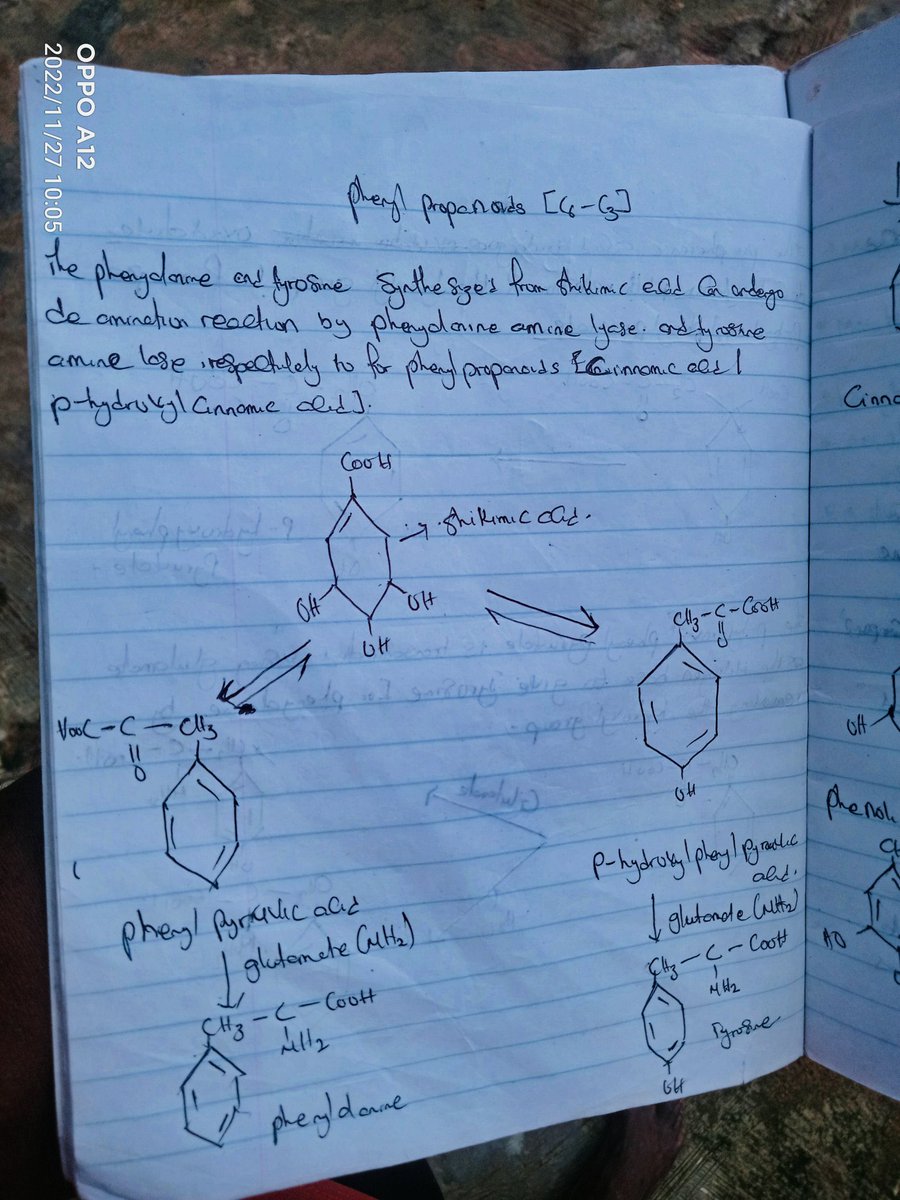 OPPO A12
2022/11/27 10:05
phenyl propanoids [C6-C3]
The phenylalanine and tyrosine Synthesizes from Shikimic acid Can undergo
de amination reaction by phenylalanine amine lyase. and tyrosine
amine lase respectively to for phenyl propanoids [Cinnamic acid /
p-hydroxyl Cinnamic acid].
COOH
→ Shikimic acid.
OH
OH
OH
CH3-C-COOH
O
OH
HOOC-C-CH3
O
phenyl pyruvic acid
glutamate (NH2)
CH3-C-COOH
NH2
phenylalanine
p-hydroxyl phenyl pyruvic
acid.
glutamate (NH2)
CH3-C-COOH
NH2
Tyrosine
OH
OH
HO